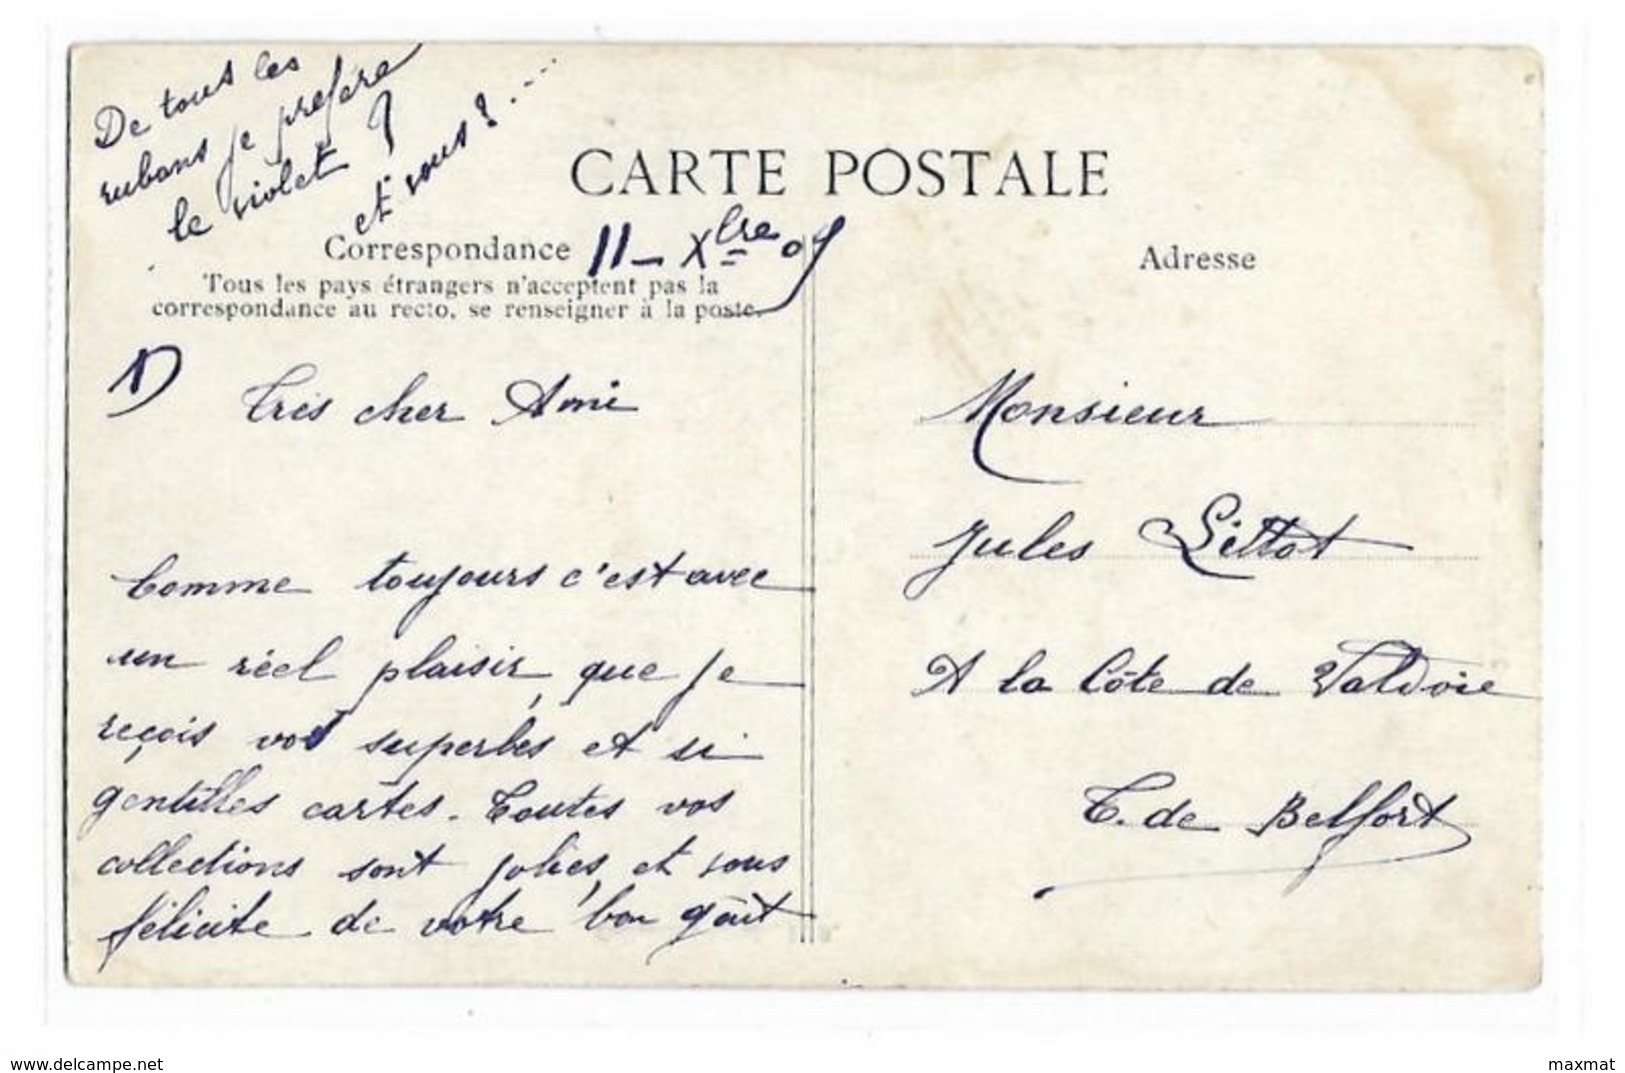 De tous les
rubans je préfère
le violet ?
et vous ? . ...
CARTE POSTALE
Correspondance
11 - Xbre 05
Adresse
Tous les pays étrangers n'acceptent pas la
correspondance au recto, se renseigner à la poste.
1)
Très cher Ami
Comme toujours c'est avec
un réel plaisir, que je
reçois vos superbes et si
gentilles cartes. Toutes vos
collections sont jolies, et vous
félicite de votre bon goût
Monsieur
Jules Littot
A la Côte de Valdoie
T. de Belfort
delcampe.net
maxmat